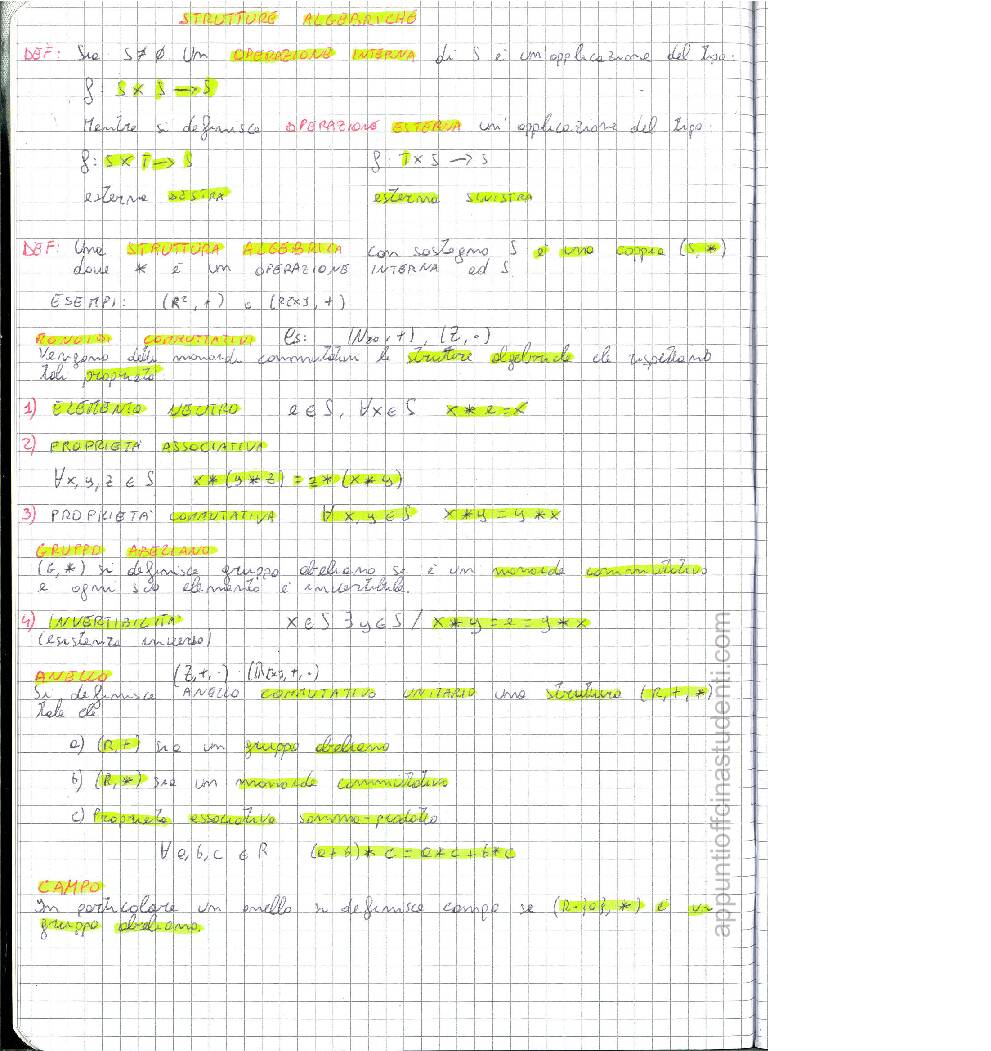 STRUTTURE ALGEBRICHE
DEF: Sia S ≠ ∅ Un OPERAZIONE INTERNA di S è un'applicazione del tipo:
f: S × S → S
Mentre si definisce OPERAZIONE ESTERNA un'applicazione del tipo:
f: S × T → S f: T × S → S
esterna DESTRA esterna SINISTRA
DEF: Una STRUTTURA ALGEBRICA con sostegno S è una coppia (S, *)
dove * è un OPERAZIONE INTERNA ad S.
ESEMPI: (R², +) e (R[x], +)
MONOIDI COMMUTATIVI es: (N≥0, +), (Z, ·)
Vengono detti monoidi commutativi le strutture algebriche che rispettano
tali proprietà
1) ELEMENTO NEUTRO e ∈ S, ∀x ∈ S x * e = x
2) PROPRIETÀ ASSOCIATIVA
∀x, y, z ∈ S x * (y * z) = z * (x * y)
3) PROPRIETÀ COMMUTATIVA ∀ x, y ∈ S x * y = y * x
GRUPPO ABELIANO
(G, *) si definisce gruppo abeliano se è un monoide commutativo
e ogni suo elemento è invertibile.
4) INVERTIBILITÀ x ∈ S ∃ y ∈ S / x * y = e = y * x
(esistenza inverso)
ANELLO (Z, +, ·) (R[x], +, ·)
Si definisce ANELLO COMMUTATIVO UNITARIO una struttura (R, +, *)
tale che
a) (R, +) sia un gruppo abeliano
b) (R, *) sia un monoide commutativo
c) Proprietà associativa somma-prodotto
∀ a, b, c ∈ R (a + b) * c = a * c + b * c
CAMPO
In particolare un anello si definisce campo se (R-{0}, *) è un
gruppo abeliano.
appuntioffcinastudenti.com